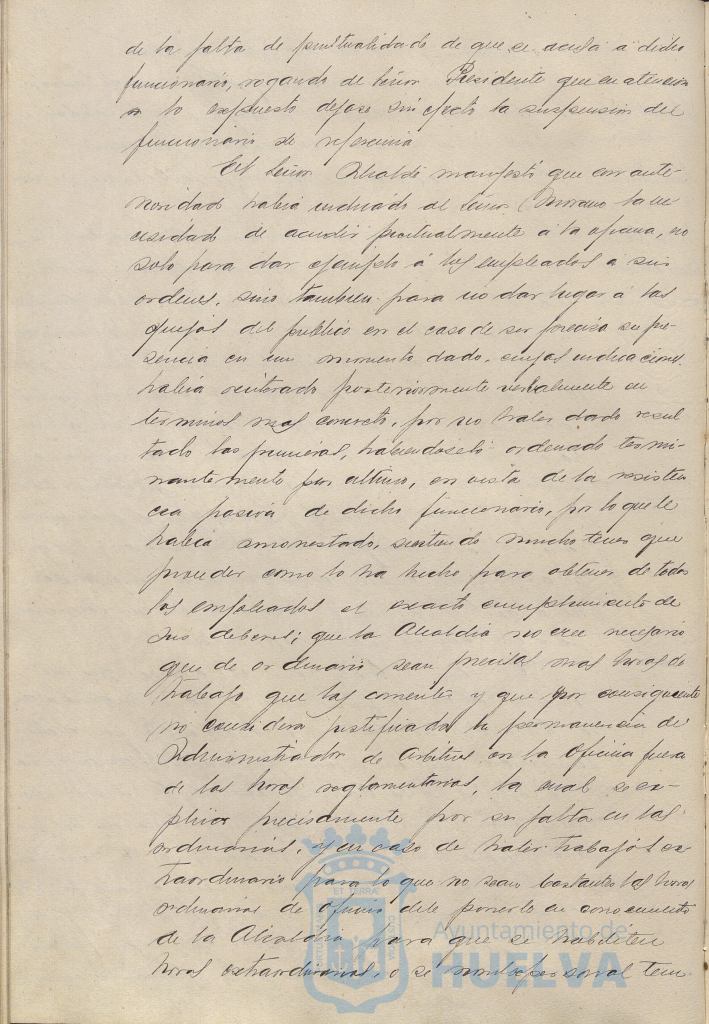 de la falta de puntualidad de que se acusa á dicho
funcionario, rogando al Señor Presidente que en atencion
a lo expuesto dejase sin efecto la suspension del
funcionario de referencia
El Señor Alcalde manifestó que con ante-
rioridad habia indicado al Señor Moreno la ne
cesidad de acudir puntualmente á la oficina, no
solo para dar ejemplo á los empleados a sus
ordenes, sino tambien para no dar lugar á las
quejas del publico en el caso de ser preciso su pre-
sencia en un momento dado, cuyas indicaciones
habia reiterado posteriormente verbalmente en
terminos mas concretos, por no haber dado resul
tado las primeras, habiendoselo ordenado termi-
nantemente por ultimo, en vista de la resisten
cia pasiva de dicho funcionario, por lo que le
habia amonestado, sintiendo mucho tener que
proceder como lo ha hecho para obtener de todos
los empleados el exacto cumplimiento de
sus deberes; que la Alcaldia no cree necesario
que de ordinario sean precisas mas horas de
trabajo que las corrientes y que por consiguiente
no considera justificada la permanencia del
Administrador de Arbitrios en la Oficina fuera
de las horas reglamentarias, la cual se ex-
plica precisamente por su falta en las
ordinarias, y en caso de haber trabajos ex
traordinario para lo que no sean bastantes las horas
ordinarias de oficina debe ponerlo en conocimiento
de la Alcaldia para que se habiliten
horas extraordinarias, o se nombre personal tem-
Ayuntamiento de
HUELVA